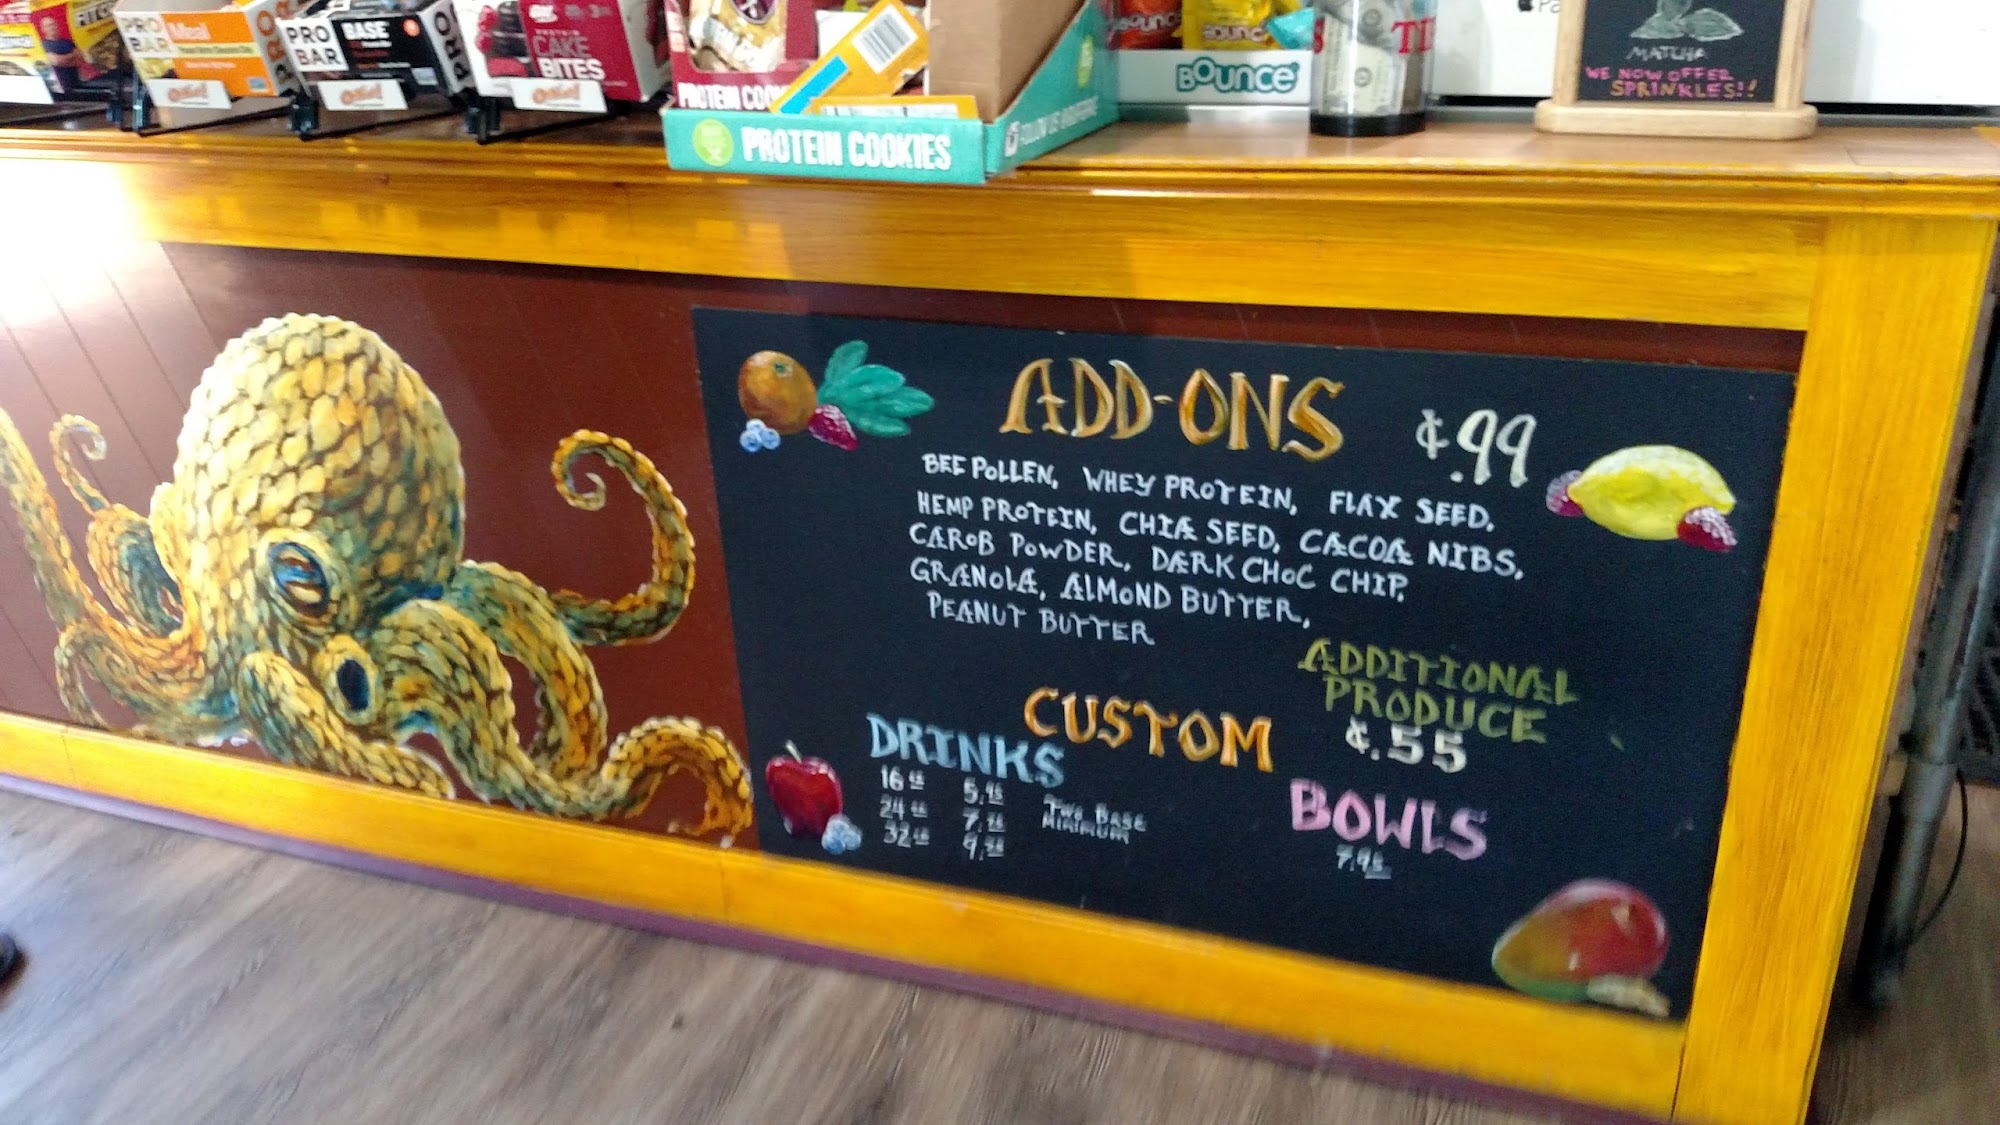 PRO BAR
Meal
PRO BAR
BASE
PRO
PROTEIN
CAKE
BITES
PROTEIN COOKIES
BOUNCE
TI
MATCHA
WE NOW OFFER
SPRINKLES!!
ADD-ONS ¢.99
BEE POLLEN, WHEY PROTEIN, FLAX SEED,
HEMP PROTEIN, CHIA SEED, CACOA NIBS,
CAROB POWDER, DARK CHOC CHIP,
GRANOLA, ALMOND BUTTER,
PEANUT BUTTER
ADDITIONAL
PRODUCE
¢.55
CUSTOM
DRINKS
16 5.95
24
32
TWO BASE
MINIMUM
BOWLS
7.95